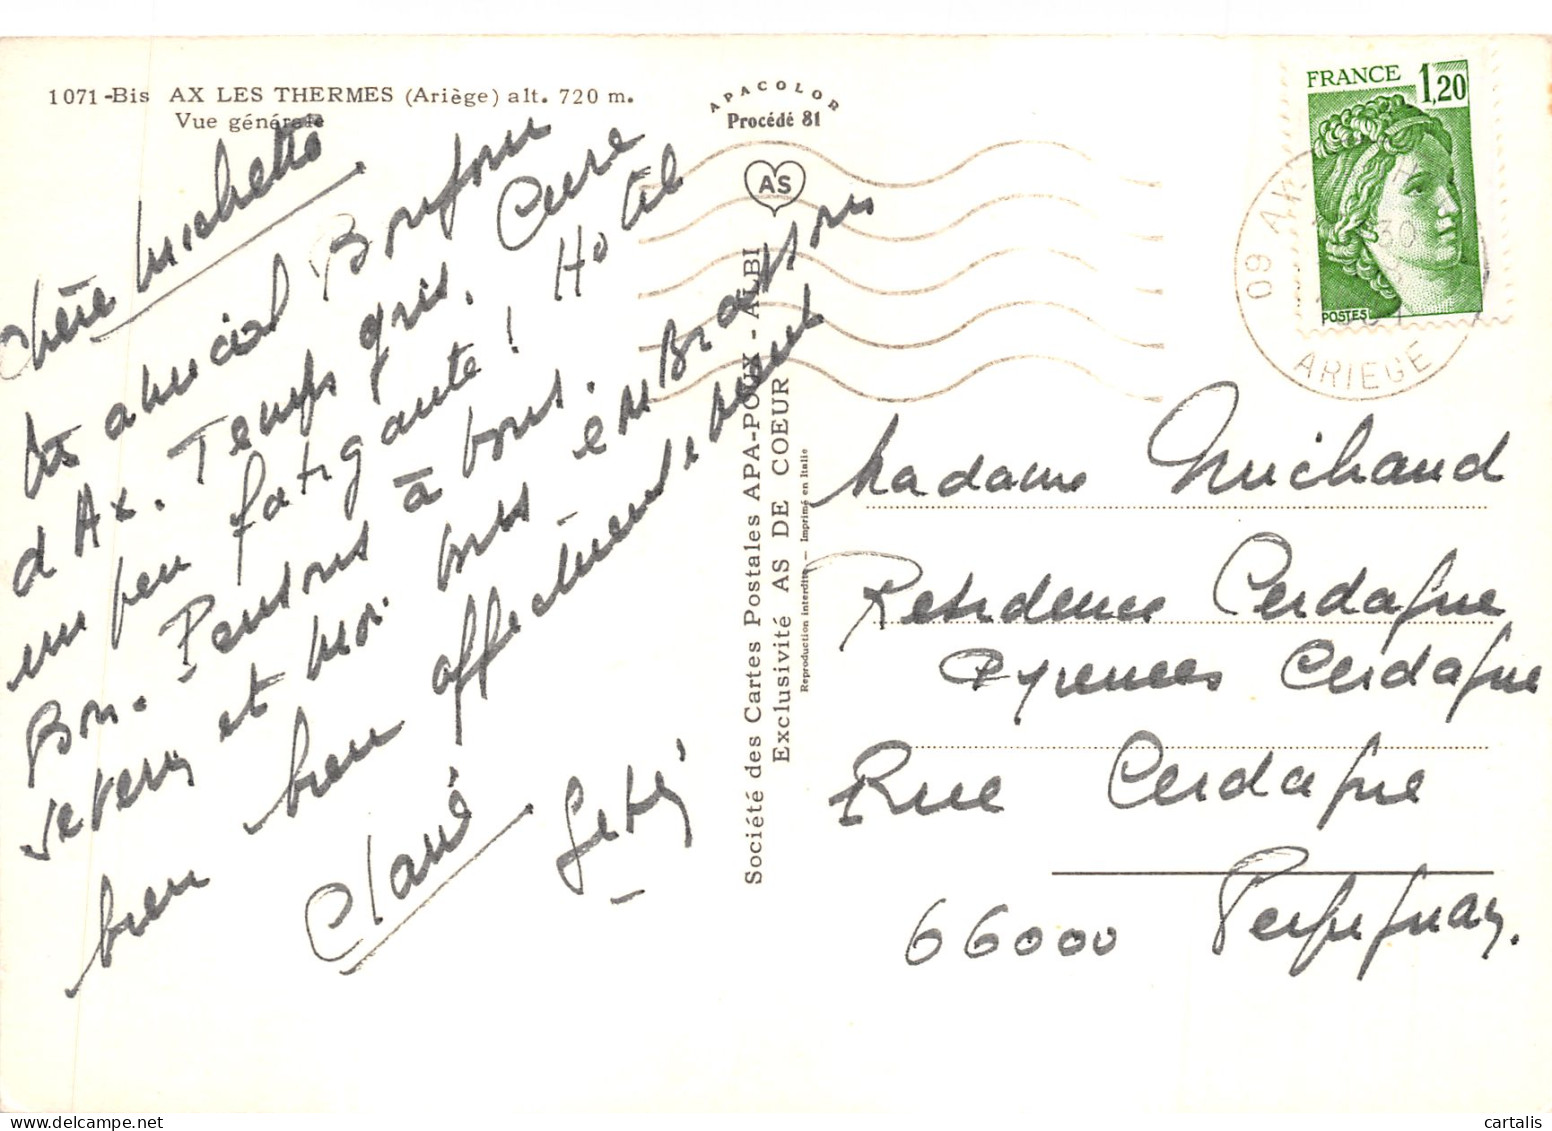 1071-Bis AX LES THERMES (Ariège) alt. 720 m.
Vue générale
APACOLOR
Procédé 81
AS
FRANCE 1,20
POSTES
09 AX
ARIEGE
Chère Michette
Un amical Bonjour
d'Ax. Temps gris. Cure
un peu fatigante! Hotel
Bon. Pensons à vous.
et moi vous embrassons
bien bien affectueusement
Société des Cartes Postales APA-POUX - ALBI
Exclusivité AS DE COEUR
Reproduction interdite — Imprimé en Italie
Madame Michaud
Résidence Cerdagne
Pyrenees Cerdagne
Rue Cerdagne
66000 Perpignan.
cartalis